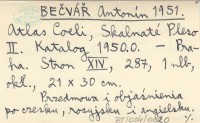 BEČVÁŘ Antonín 1951.
Atlas Coeli, Skalnaté Pleso
II. Katalog 1950.0. – Pra-
ha. Stron XIV, 287, 1 nlb,
okł., 21 x 30 cm.
Przedmowa i objaśnienia
po czesku, rosyjsku i angielsku.